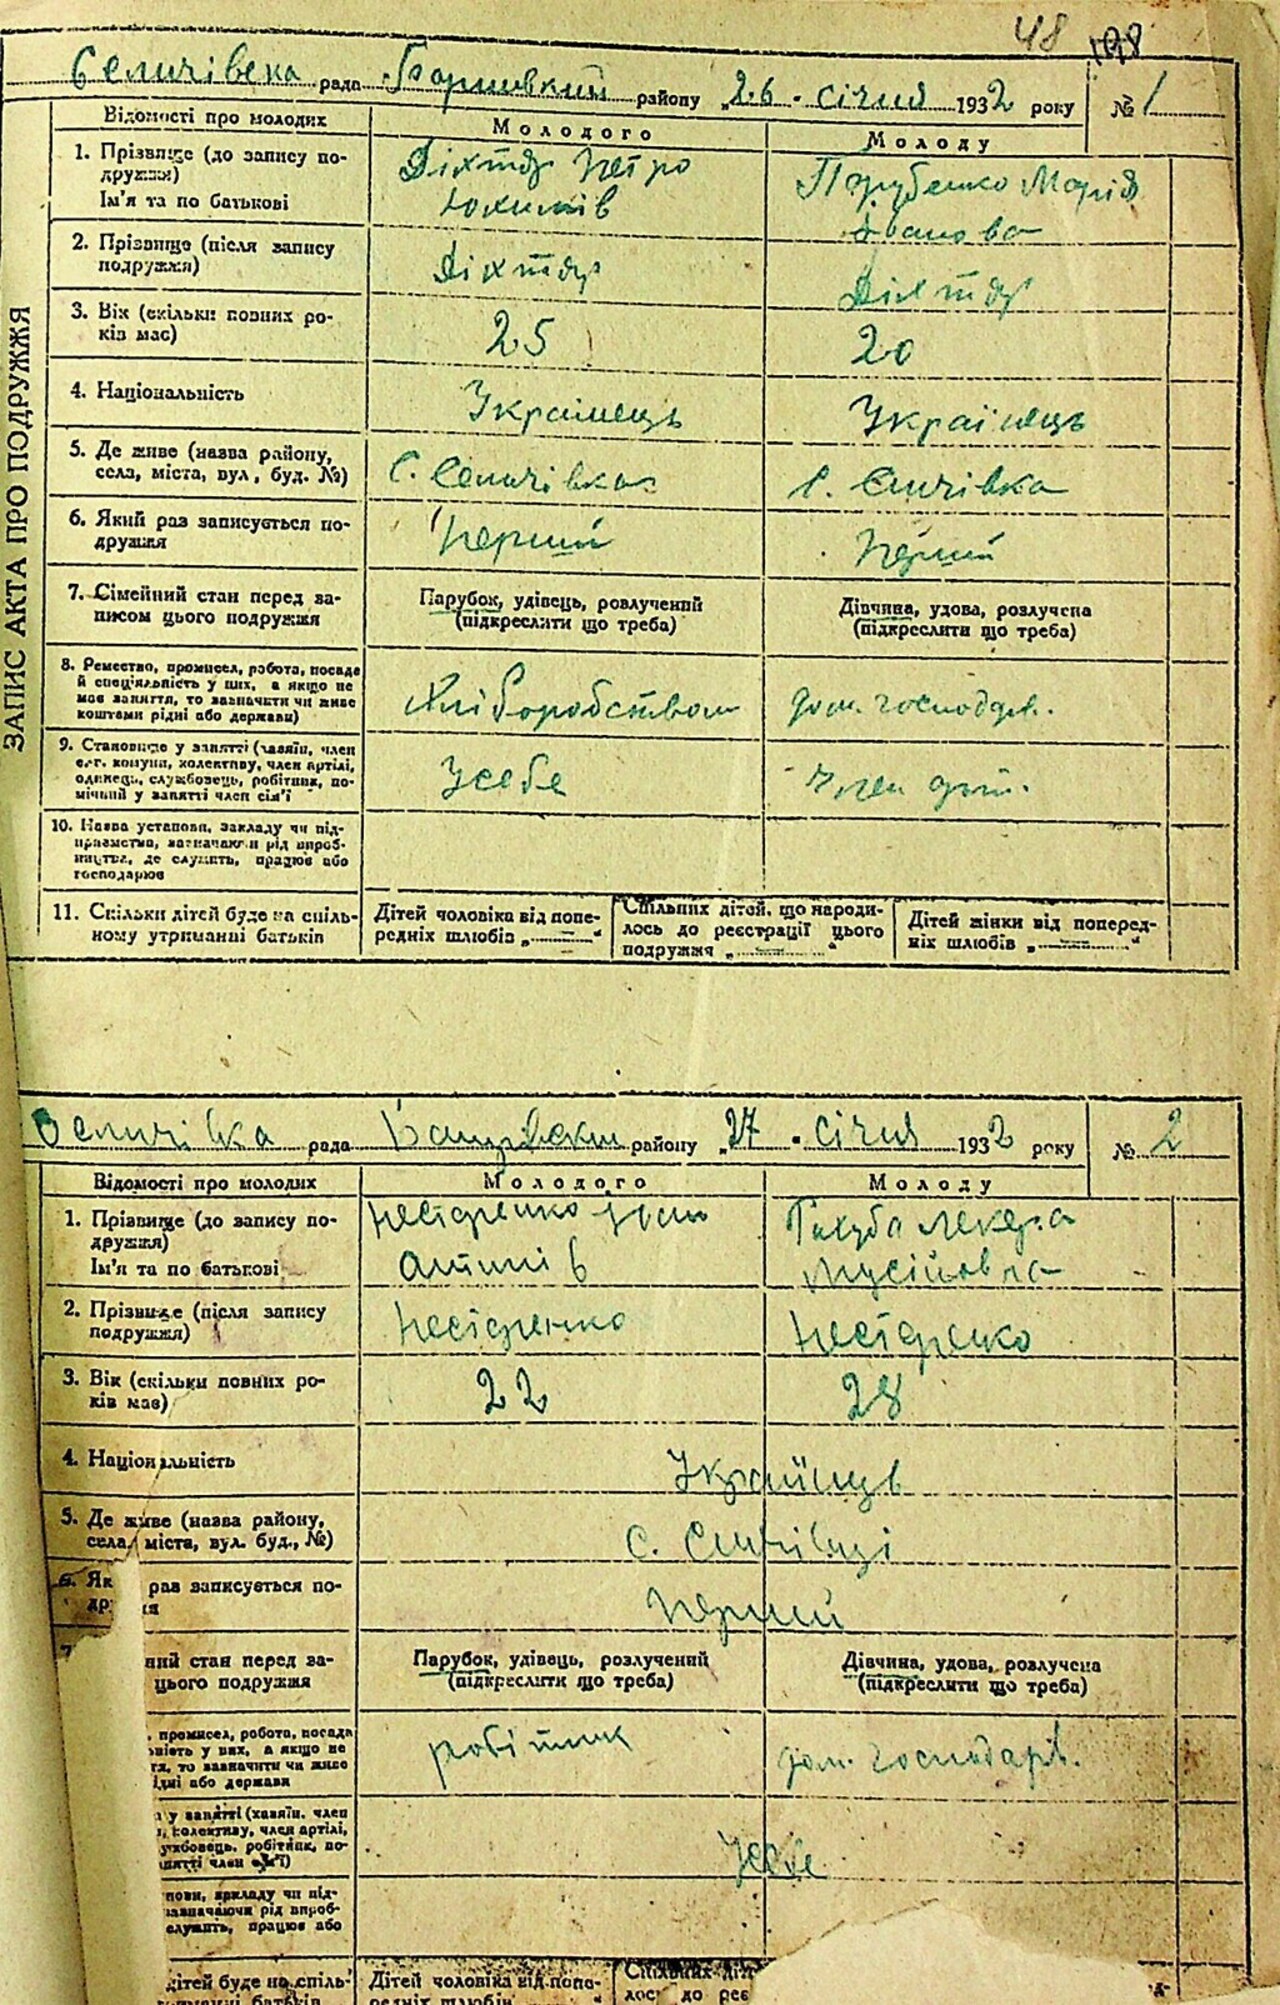 48 198
Селичівська рада Баришівський району „26" січня 1932 року № 1
ЗАПИС АКТА ПРО ПОДРУЖЖЯ
Відомості про молодих Молодого Молоду
1. Прізвище (до запису по- Діхтяр Петро Парубенко Марія
дружжя)
Ім'я та по батькові Юхимів Іванова
2. Прізвище (після запису Діхтяр Діхтяр
подружжя)
3. Вік (скільки повних ро- 25 20
ків має)
4. Національність Українець Українець
5. Де живе (назва району, С. Селичівка с. Селичівка
села, міста, вул, буд. №)
6. Який раз записується по- перший перший
дружжя
7. Сімейний стан перед за- Парубок, удівець, розлучений Дівчина, удова, розлучена
писом цього подружжя (підкреслити що треба) (підкреслити що треба)
8. Ремество, промисел, робота, посада
й спеціяльність у них, а якщо не Хліборобством дом. господар.
має заняття, то зазначити чи живе
коштами рідні або держави)
9. Становище у занятті (хазяїн, член
с.-г. комуни, колективу, член артілі, Усебе Член
одинець, службовець, робітник, по-
мічний у занятті член сім'ї
10. Назва установи, закладу чи під-
приємства, зазначаючи рід вироб-
ництва, де служить, працює або
господарює
11. Скільки дітей буде на спіль- Дітей чоловіка від попе- Спільних дітей, що народи- Дітей жінки від поперед-
ному утриманні батьків редніх шлюбів „—" лось до реєстрації цього ніх шлюбів „—"
подружжя „—"
Селичівка рада району „27" січня 1932 року № 2
Відомості про молодих Молодого Молоду
1. Прізвище (до запису по- Нестеренко Голуба
дружжя)
Ім'я та по батькові Мусіївна
2. Прізвище (після запису Нестеренко Нестеренко
подружжя)
3. Вік (скільки повних ро- 22 28
ків має)
4. Національність Українців
5. Де живе (назва району, с. Селичівці
села, міста, вул. буд., №)
6. Як раз записується по- перший
др я
7 ний стан перед за- Парубок, удівець, розлучений Дівчина, удова, розлучена
цього подружжя (підкреслити що треба) (підкреслити що треба)
, промисел, робота, посада
ність у них, а якщо не робітник дом. господарів.
тя, то зазначити чи живе
ідні або держави
у занятті (хазяїн. член
, колективу, член артілі, Усебе
ужбовець. робітник, по-
нятті член сім'ї)
нови, закладу чи під-
зазначаючи рід вироб-
служить, працює або
дітей буде на спіль- Дітей чоловіка від попе- Спільних діт
манні батьків редніх шлюбів лось до реє